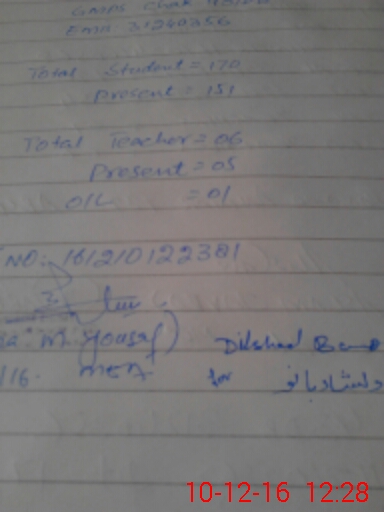 GMPS Chak
EMIS 31240356
Total Student = 170
Present = 151
Total Teacher = 06
Present = 05
O/L = 01
NO: 161210122381
M. Yousaf) Dilshad Bano
/16. MEA for دلشاد بانو
10-12-16 12:28